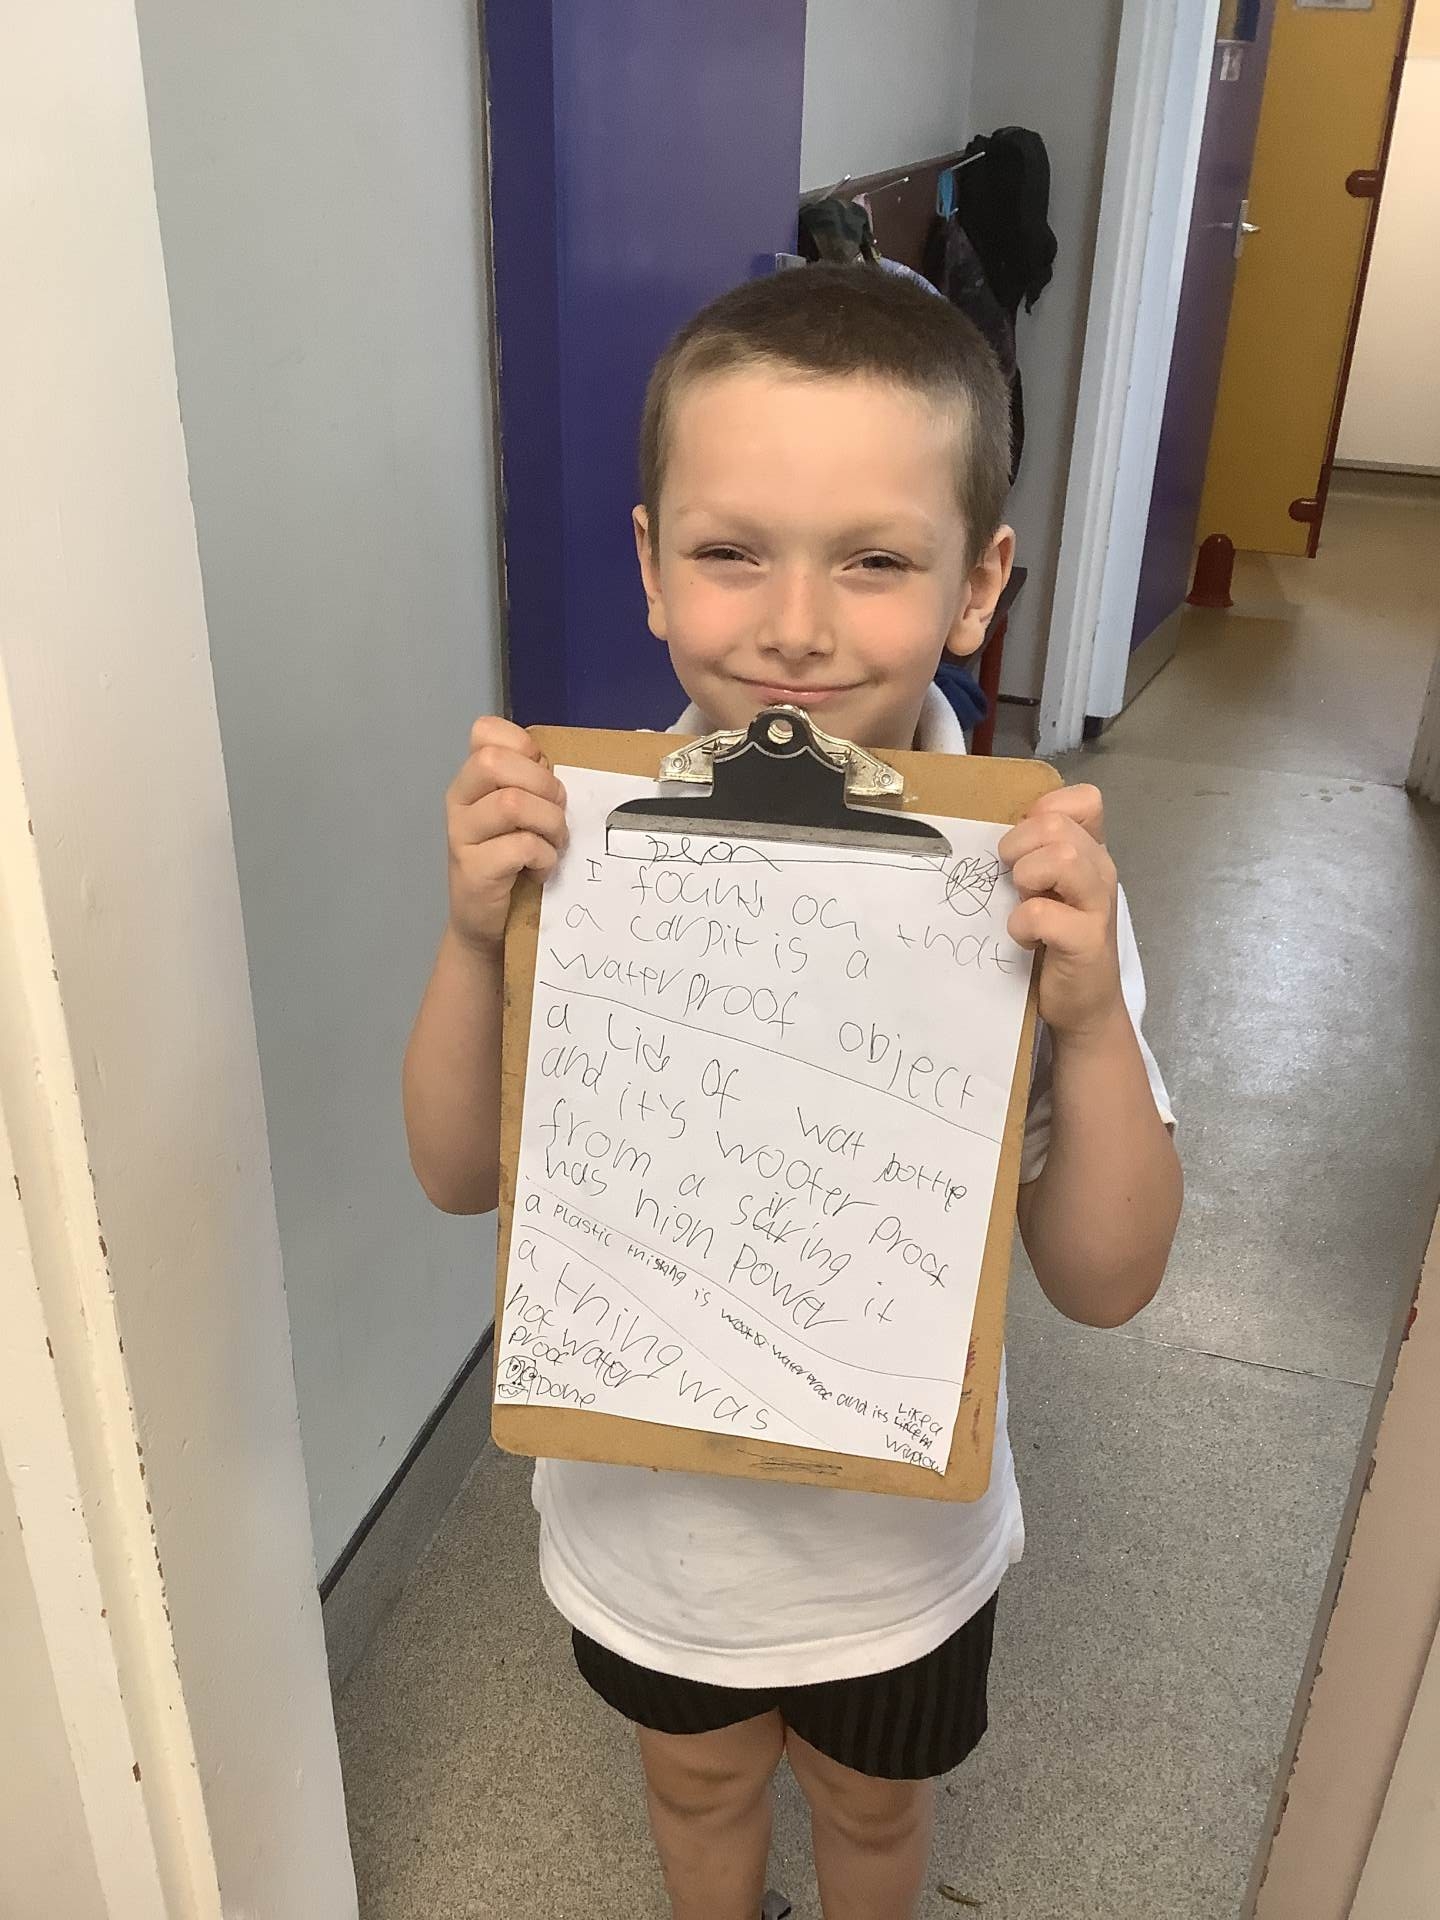 I found ou that
a carpit is a
waterproof object
a Lid of wat bottle
and it's wooter proof
from a string it
has high power
a plastic thing is waterproof and its Like a
window
a thing was
not water
proof
Done